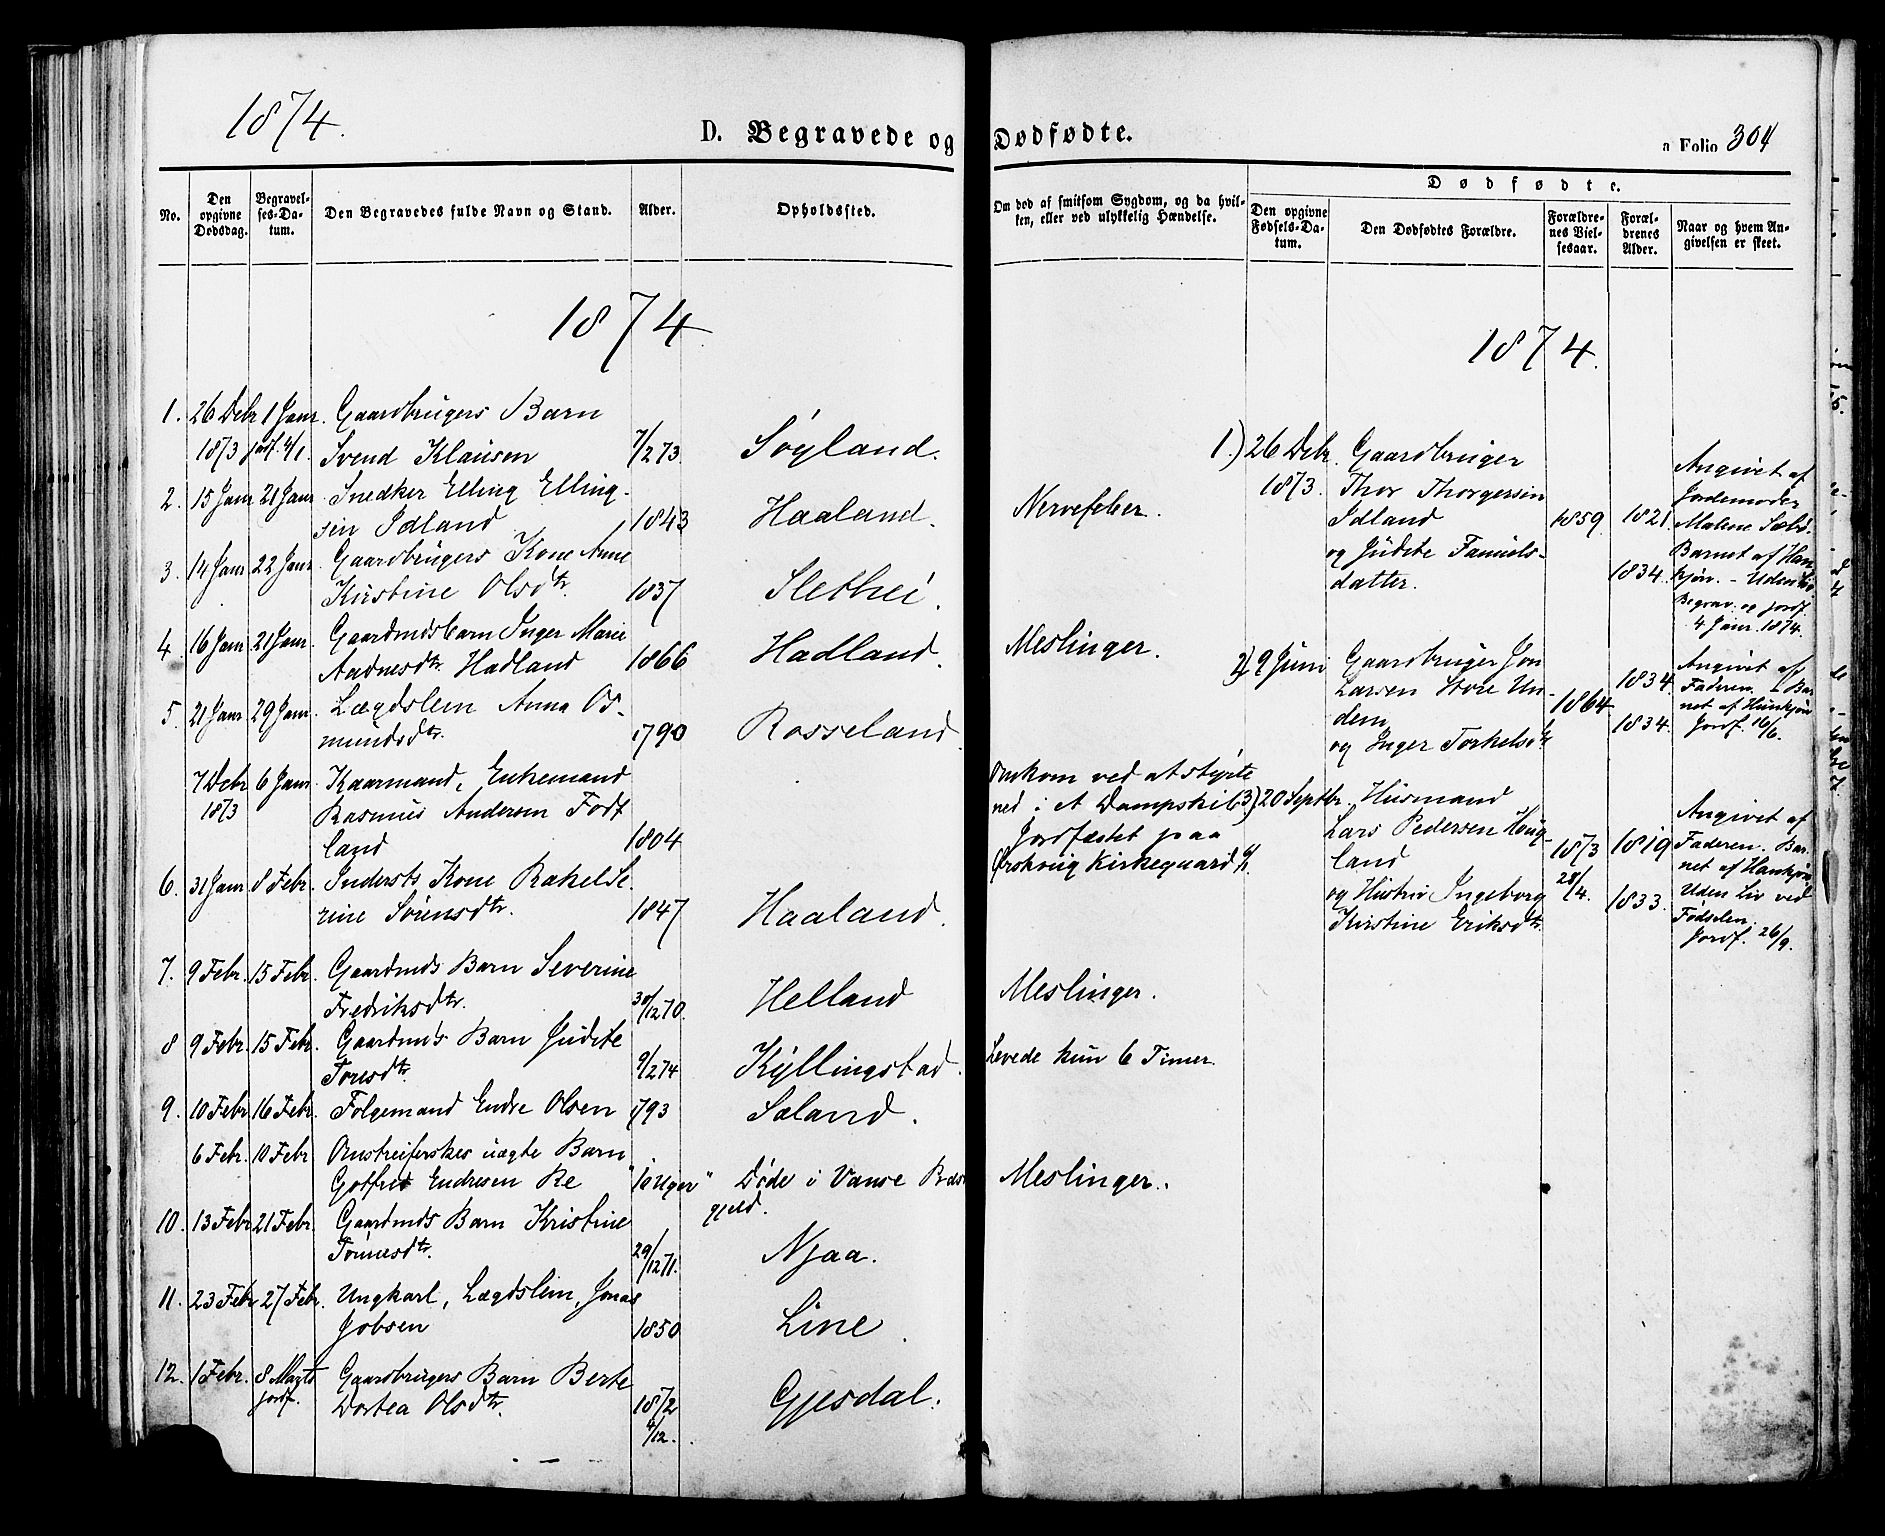 1874.
D. Begravede og Dødfødte.
a Folio 304
No.
Den opgivne Dødsdag.
Begravelses-Datum.
Den Begravedes fulde Navn og Stand.
Alder.
Opholdssted.
Om død af smitsom Sygdom, og da hvilken, eller ved ulykkelig Hændelse.
Dødfødte.
Den opgivne Fødsels-Datum.
Den Dødfødtes Forældre.
Forældrenes Vielsesaar.
Forældrenes Alder.
Naar og hvem Angivelsen er skeet.
1874.
1. 26 Debr 1 Janr. Gaardbrugers Barn
1873 jordf. 4/1. Svend Klausen 7/2 73. Søyland.
2. 15 Janr 21 Janr. Snedker Elling Elling-
sen Idland 1843 Haaland. Nervefeber.
3. 14 Janr 22 Janr. Gaardbrugers Kone Anne
Kirstine Olsdtr. 1837 Slethei.
4. 16 Janr 21 Janr. Gaardmdsbarn Inger Marie
Aadnesdtr. Hadland 1866 Hadland. Meslinger.
5. 21 Janr 29 Janr. Lægdslem Anna Os-
mundsdtr. 1790 Rosseland.
7 Debr 6 Janr. Kaarmand, Enkemand
1873 Rasmus Andersen Fodt
land 1804
Omkom ved at styrte
ned i et Dampskib
Jordfæstet paa
Ørskoug Kirkegaard
6. 31 Janr. 8 Febr. Indersts Kone Rakel Se-
rine Sørensdtr. 1847 Haaland.
7. 9 Febr. 15 Febr. Gaardmds Barn Severine
Fredriksdtr. 30/12 70. Helland Meslinger.
8 9 Febr. 15 Febr. Gaardmds Barn Judite
Toresdtr. 9/2 74 Kyllingstad. Levede kun 6 Timer.
9. 10 Febr. 16 Febr. Følgemand Endre Olsen 1793 Sæland.
6 Febr. 10 Febr Omstreiferskes uægte Barn
Gotfred Endresen Re "10 Uger" Døde i Vanse Præs
gjeld. Meslinger.
10. 13 Febr 21 Febr. Gaardmds Barn Kristine
Tønnesdtr. 29/12 71. Njaa.
11. 23 Febr 27 Febr. Ungkarl, Lægdslem, Jonas
Jobsen 1850 Line.
12. 1 Febr. 8 Marts Gaardbrugers Barn Berte
jordf. Dortea Olsdtr. 1872 4/12. Gjesdal.
1874.
1.) 26 Debr. Gaardbruger
1873. Thor Thorgersen
Idland 1859. 1821.
og Judite Tanielsdatter. 1834.
Angivet af
Jordemoder
Malene Sæbø.
Barnet af Han-
kjøn. - Uden Liv.
Begrav. og jordf.
4 Janr. 1874.
2) 9 Juni Gaardbruger Jon
Larsen Store Un-
dem 1864 1834.
og Inger Torkelsdtr. 1834.
Angivet af
Faderen. - Bar-
net af Hunkjøn
Jordf. 16/6.
3) 20 Septbr. Husmand
Lars Pedersen Houg-
land 1873 28/4. 1819
og Hustru Ingeborg
Kirstine Eriksdtr. 1833.
Angivet af
Faderen. Bar-
net af Hankjøn
Uden Liv ved
Fødselen.
Jordf. 26/9.